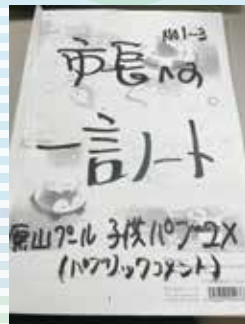 No1~3
市長への
一言ノート
山プール 子供パブコメ
(パブリックコメント)